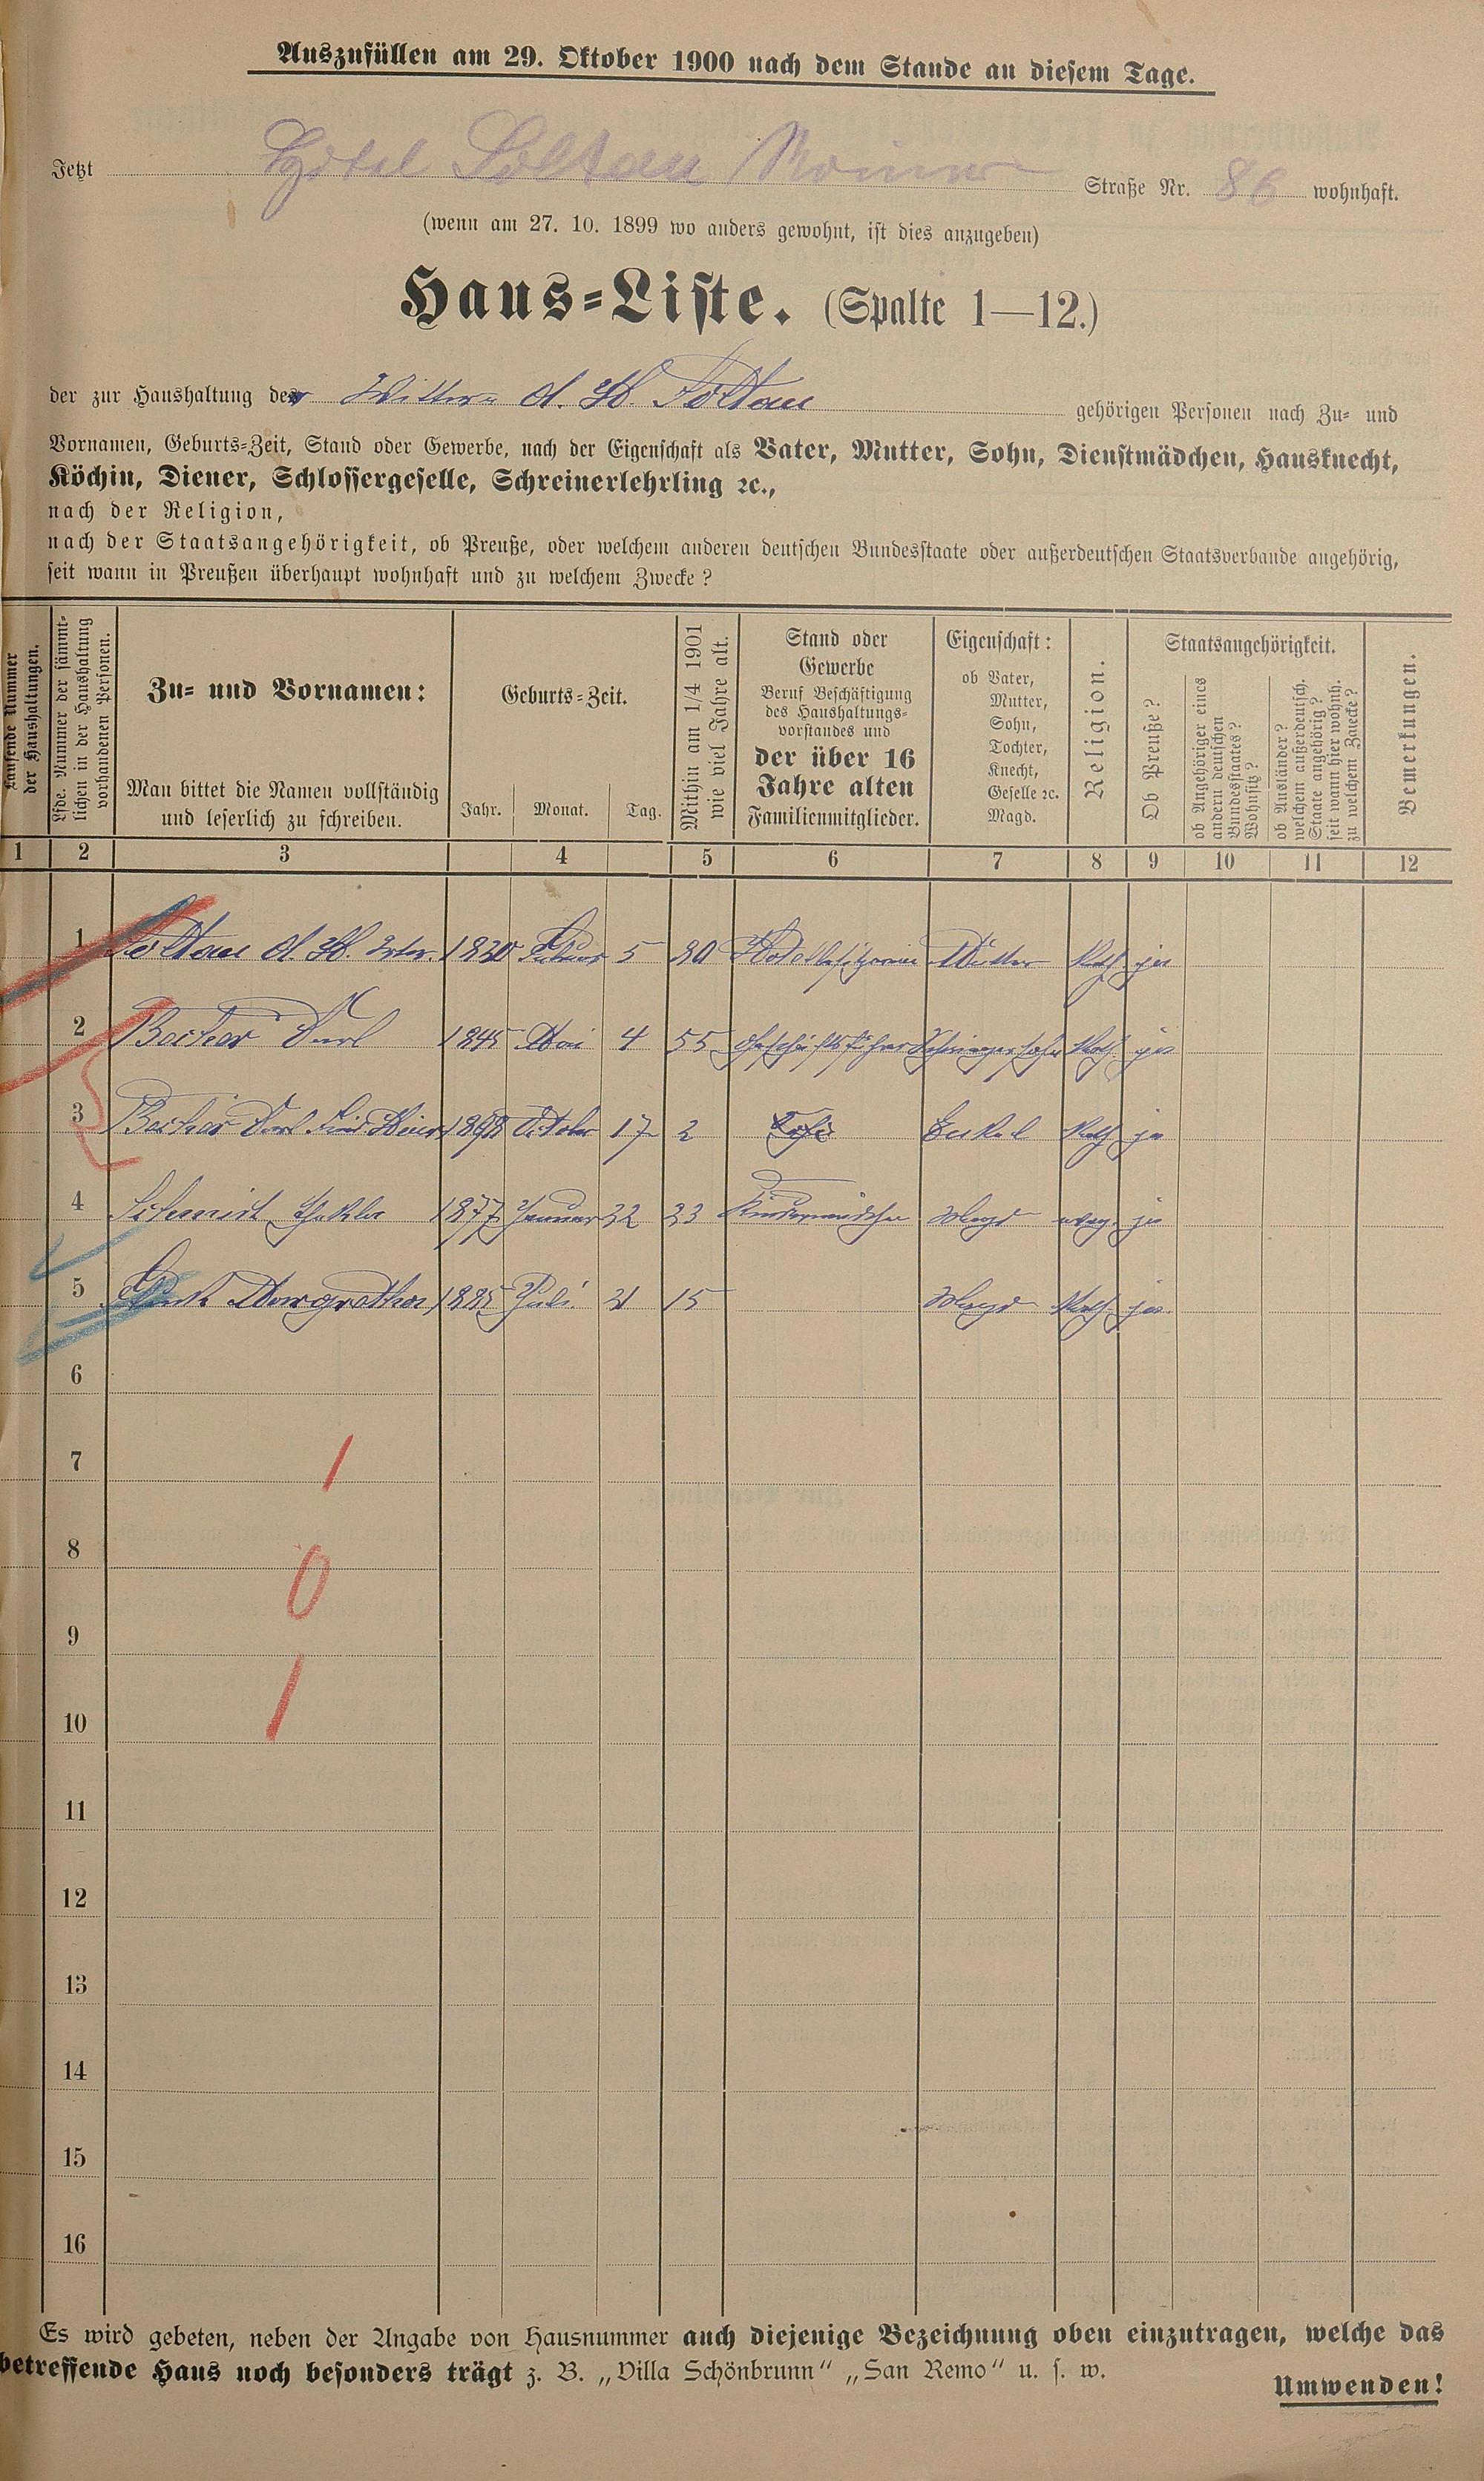 Auszufüllen am 29. Oktober 1900 nach dem Stande an diesem Tage.
Jetzt Hotel Soltau Straße Nr. 86 wohnhaft.
(wenn am 27. 10. 1899 wo anders gewohnt, ist dies anzugeben)
Haus=Liste. (Spalte 1—12.)
der zur Haushaltung der A. H. Soltau gehörigen Personen nach Zu= und
Vornamen, Geburts=Zeit, Stand oder Gewerbe, nach der Eigenschaft als Vater, Mutter, Sohn, Dienstmädchen, Hausknecht,
Köchin, Diener, Schlossergeselle, Schreinerlehrling ꝛc.,
nach der Religion,
nach der Staatsangehörigkeit, ob Preuße, oder welchem anderen deutschen Bundesstaate oder außerdeutschen Staatsverbande angehörig,
seit wann in Preußen überhaupt wohnhaft und zu welchem Zwecke?
Laufende Nummer
der Haushaltungen.
Lfde. Nummer der sämmt=
lichen in der Haushaltung
vorhandenen Personen.
Zu= und Vornamen:
Man bittet die Namen vollständig
und leserlich zu schreiben.
Geburts=Zeit.
Jahr. Monat. Tag.
Mithin am 1/4 1901
wie viel Jahre alt.
Stand oder
Gewerbe
Beruf Beschäftigung
des Haushaltungs=
vorstandes und
der über 16
Jahre alten
Familienmitglieder.
Eigenschaft:
ob Vater,
Mutter,
Sohn,
Tochter,
Knecht,
Geselle ꝛc.
Magd.
Religion.
Staatsangehörigkeit.
Ob Preuße?
ob Angehöriger eines
andern deutschen
Bundesstaates?
Wohnsitz?
ob Ausländer?
welchem außerdeutsch.
Staate angehörig?
seit wann hier wohnh.
zu welchem Zwecke?
Bemerkungen.
1 2 3 4 5 6 7 8 9 10 11 12
1 Soltau A. H. 1820 Februar 5 80 Hotelbesitzerin Mutter Kath. ja
2 Becker Carl 1845 Mai 4 55 Geschäftsführer Schwiegersohn Kath. ja
3 Becker Carl 1898 October 17 2 Enkel Kath ja
4 Schmidt Thekla 1877 Januar 22 23 Kindermädchen Magd evg. ja
5 Margretha 1885 Juli 21 15 Magd Kath. ja
6
7 1
8 0
9
10 1
11
12
13
14
15
16
Es wird gebeten, neben der Angabe von Hausnummer auch diejenige Bezeichnung oben einzutragen, welche das
betreffende Haus noch besonders trägt z. B. „Villa Schönbrunn“ „San Remo“ u. s. w.
Umwenden!